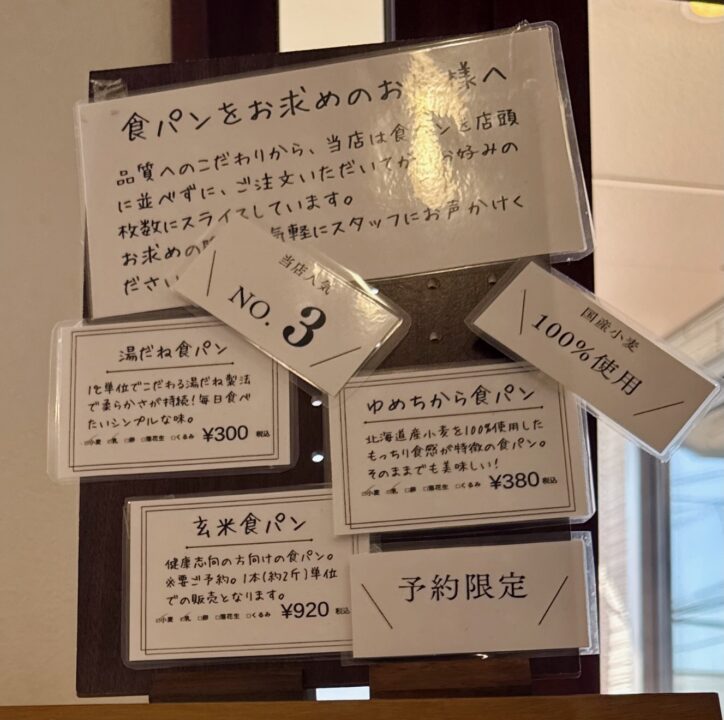 食パンをお求めのお 様へ
品質へのこだわりから、当店は食パンを店頭
に並べずに、ご注文いただいてから お好みの
枚数にスライスしています。
お求めの 気軽にスタッフにお声かけく
ださい
当店人気
NO. 3
国産小麦
100%使用
湯だね食パン
1℃単位でこだわる湯だね製法
で柔らかさが持続!毎日食べ
たいシンプルな味。
☑小麦 ☑乳 □卵 □落花生 □くるみ ¥300 税込
ゆめちから食パン
北海道産小麦を100%使用した
もっちり食感が特徴の食パン。
そのままでも美味しい!
☑小麦 ☑乳 □卵 □落花生 □くるみ ¥380 税込
玄米食パン
健康志向の方向けの食パン。
※要ご予約。1本(約2斤)単位
での販売となります。
☑小麦 ☑乳 □卵 □落花生 □くるみ ¥920 税込
予約限定